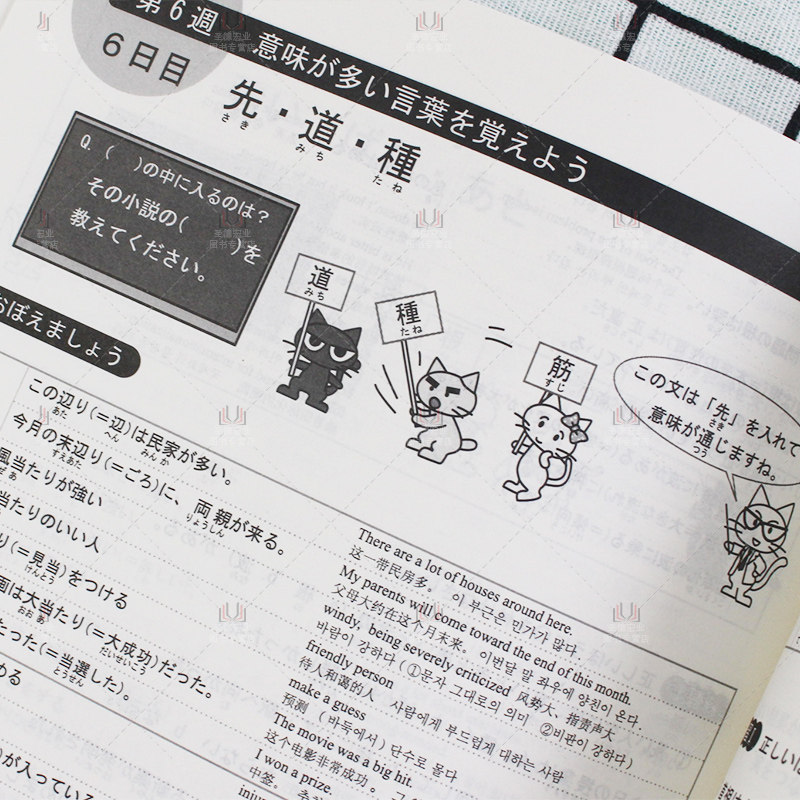 第6週
意味が多い言葉を覚えよう
6日目
先・道・種
さき みち たね
Q. ( )の中に入るのは？
その小説の( )を
教えてください。
道
みち
種
たね
筋
すじ
この文は「先」を入れて
さき
意味が通じますね。
つう
おぼえましょう
この辺り(＝辺)は民家が多い。
あた へん みんか
今月の末辺り(＝ごろ)に、両親が来る。
すえあた りょうしん
風当たりが強い
当たりのいい人
り(＝見当)をつける
けんとう
画は大当たり(＝大成功)だった。
おおあ だいせいこう
たった(＝当選した)。
とうせん
める
が入っている
There are a lot of houses around here.
这一带民房多。 이 부근은 민가가 많다.
My parents will come toward the end of this month.
父母大约在这个月末来。 이번달 말 좌우에 양친이 온다.
windy, being severely criticized 风势大、指责声大
바람이 강하다 (①문자 그대로의 의미 ②비판이 강하다)
friendly person
待人和蔼的人 사람에게 부드럽게 대하는 사람
make a guess
预测 (바둑에서) 단수로 몰다
The movie was a big hit.
这个电影非常成功。
I won a prize.
中签。
正しい